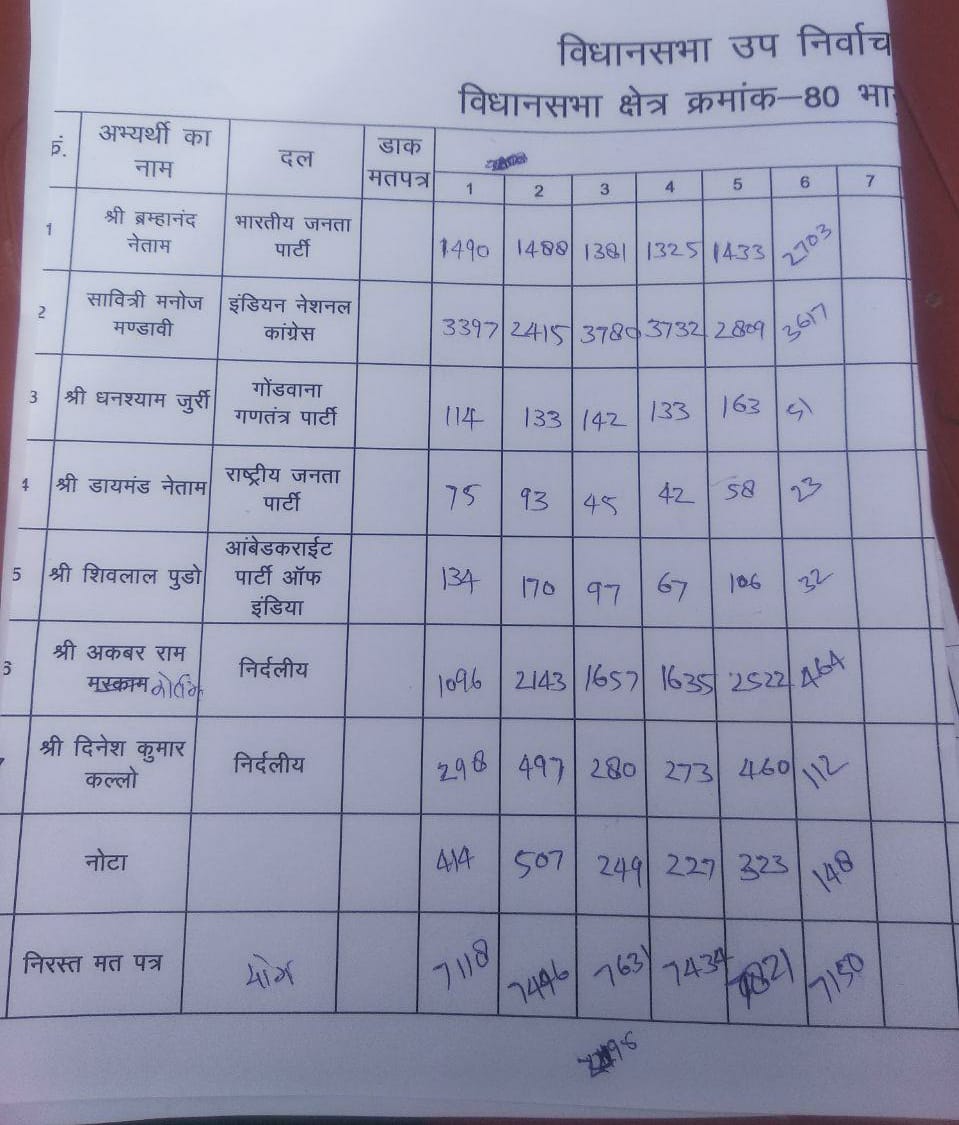 विधानसभा उप निर्वाच
विधानसभा क्षेत्र क्रमांक–80 भा
क्रं. अभ्यर्थी का नाम दल डाक मतपत्र 1 2 3 4 5 6 7
1 श्री ब्रम्हानंद नेताम भारतीय जनता पार्टी 1490 1488 1381 1325 1433 2703
2 सावित्री मनोज मण्डावी इंडियन नेशनल कांग्रेस 3397 2415 3780 3732 2809 3617
3 श्री धनश्याम जुर्री गोंडवाना गणतंत्र पार्टी 114 133 142 133 163 51
4 श्री डायमंड नेताम राष्ट्रीय जनता पार्टी 75 93 45 42 58 23
5 श्री शिवलाल पुडो आंबेडकराईट पार्टी ऑफ इंडिया 134 170 97 67 106 32
6 श्री अकबर राम मरकाम कोर्राम निर्दलीय 1096 2143 1657 1635 2522 464
श्री दिनेश कुमार कल्लो निर्दलीय 298 497 280 273 460 112
नोटा 414 507 249 227 323 148
निरस्त मत पत्र योग 7118 7446 7631 7434 7150